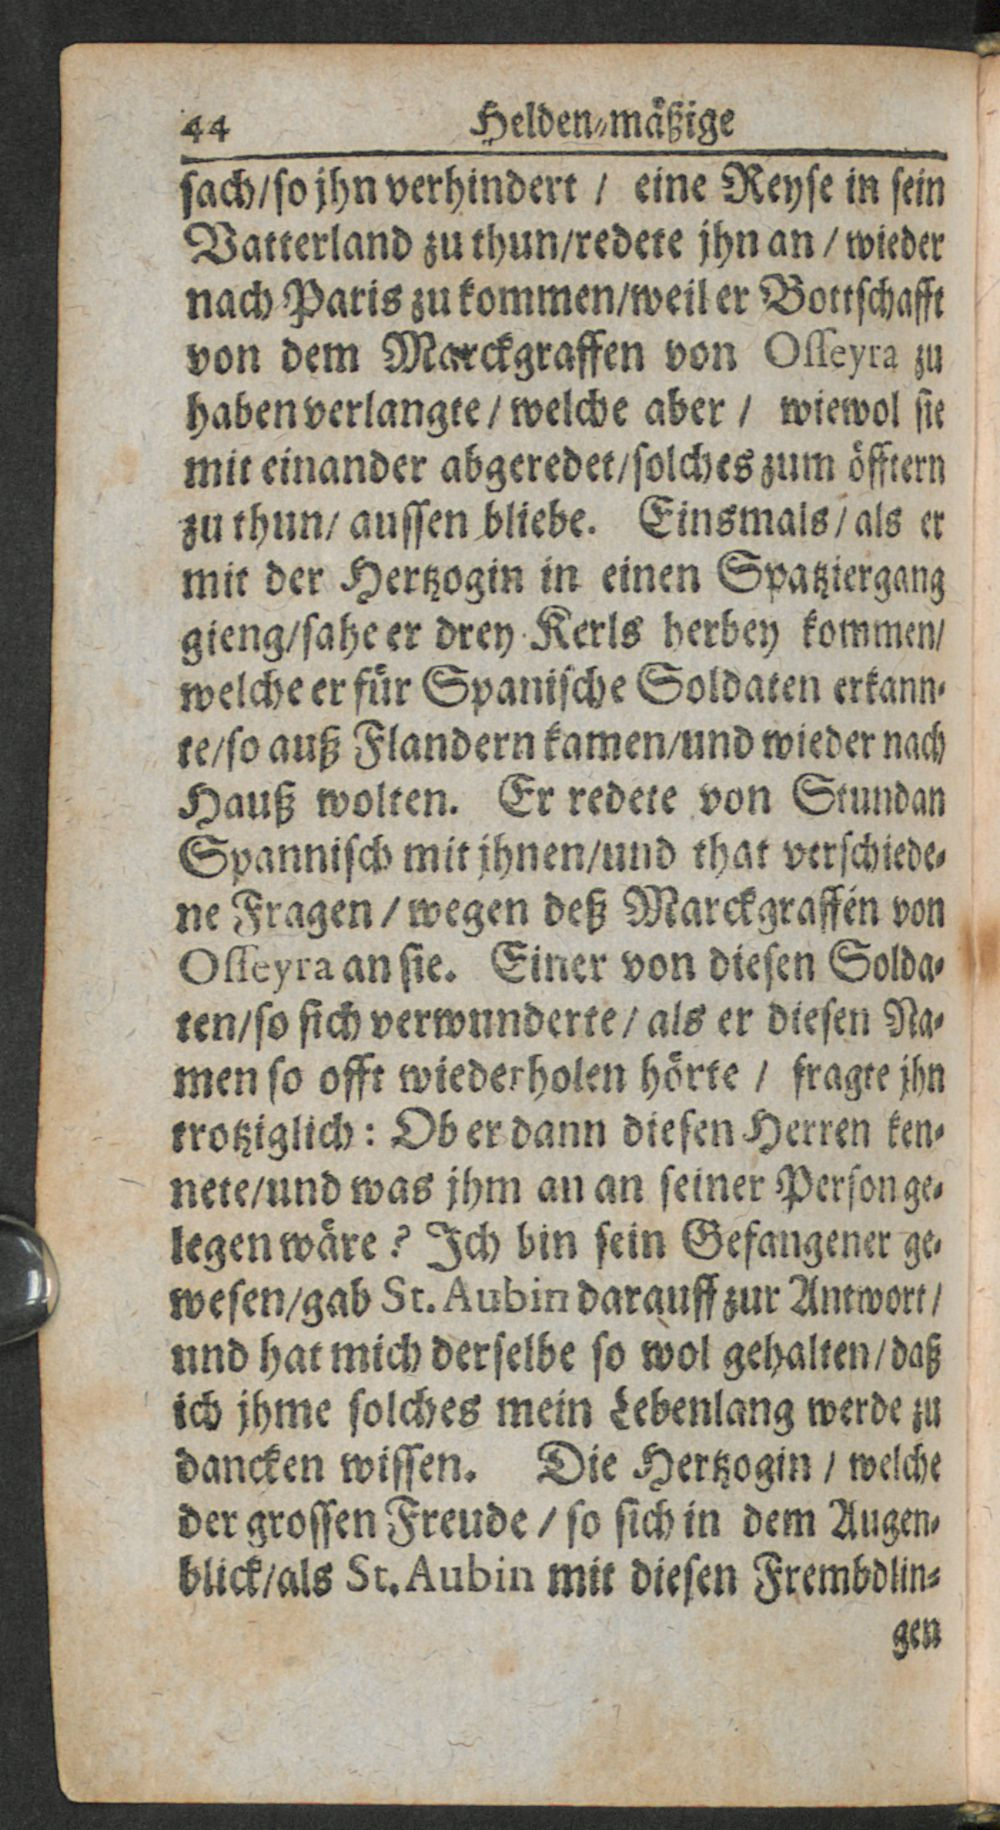 44 Helden-mäßige
sach/so jhn verhindert / eine Reyse in sein
Vatterland zu thun/redete jhn an / wieder
nach Paris zu kommen/weil er Bottschafft
von dem Marckgraffen von Osseyra zu
haben verlangte / welche aber / wiewol sie
mit einander abgeredet/solches zum öfftern
zu thun/ aussen bliebe. Einsmals / als er
mit der Hertzogin in einen Spatziergang
gieng/sahe er drey Kerls herbey kommen/
welche er für Spanische Soldaten erkann-
te/so auß Flandern kamen/und wieder nach
Hauß wolten. Er redete von Stundan
Spannisch mit jhnen/und that verschiede-
ne Fragen / wegen deß Marckgraffen von
Osseyra an sie. Einer von diesen Solda-
ten/so sich verwunderte / als er diesen Na-
men so offt wiederholen hörte / fragte jhn
trotziglich: Ob er dann diesen Herren ken-
nete/und was jhm an an seiner Person ge-
legen wäre? Jch bin sein Gefangener ge-
wesen/gab St. Aubin darauff zur Antwort /
und hat mich derselbe so wol gehalten / daß
ich jhme solches mein Lebenlang werde zu
dancken wissen. Die Hertzogin / welche
der grossen Freude / so sich in dem Augen-
blick/als St. Aubin mit diesen Frembdlin-
gen